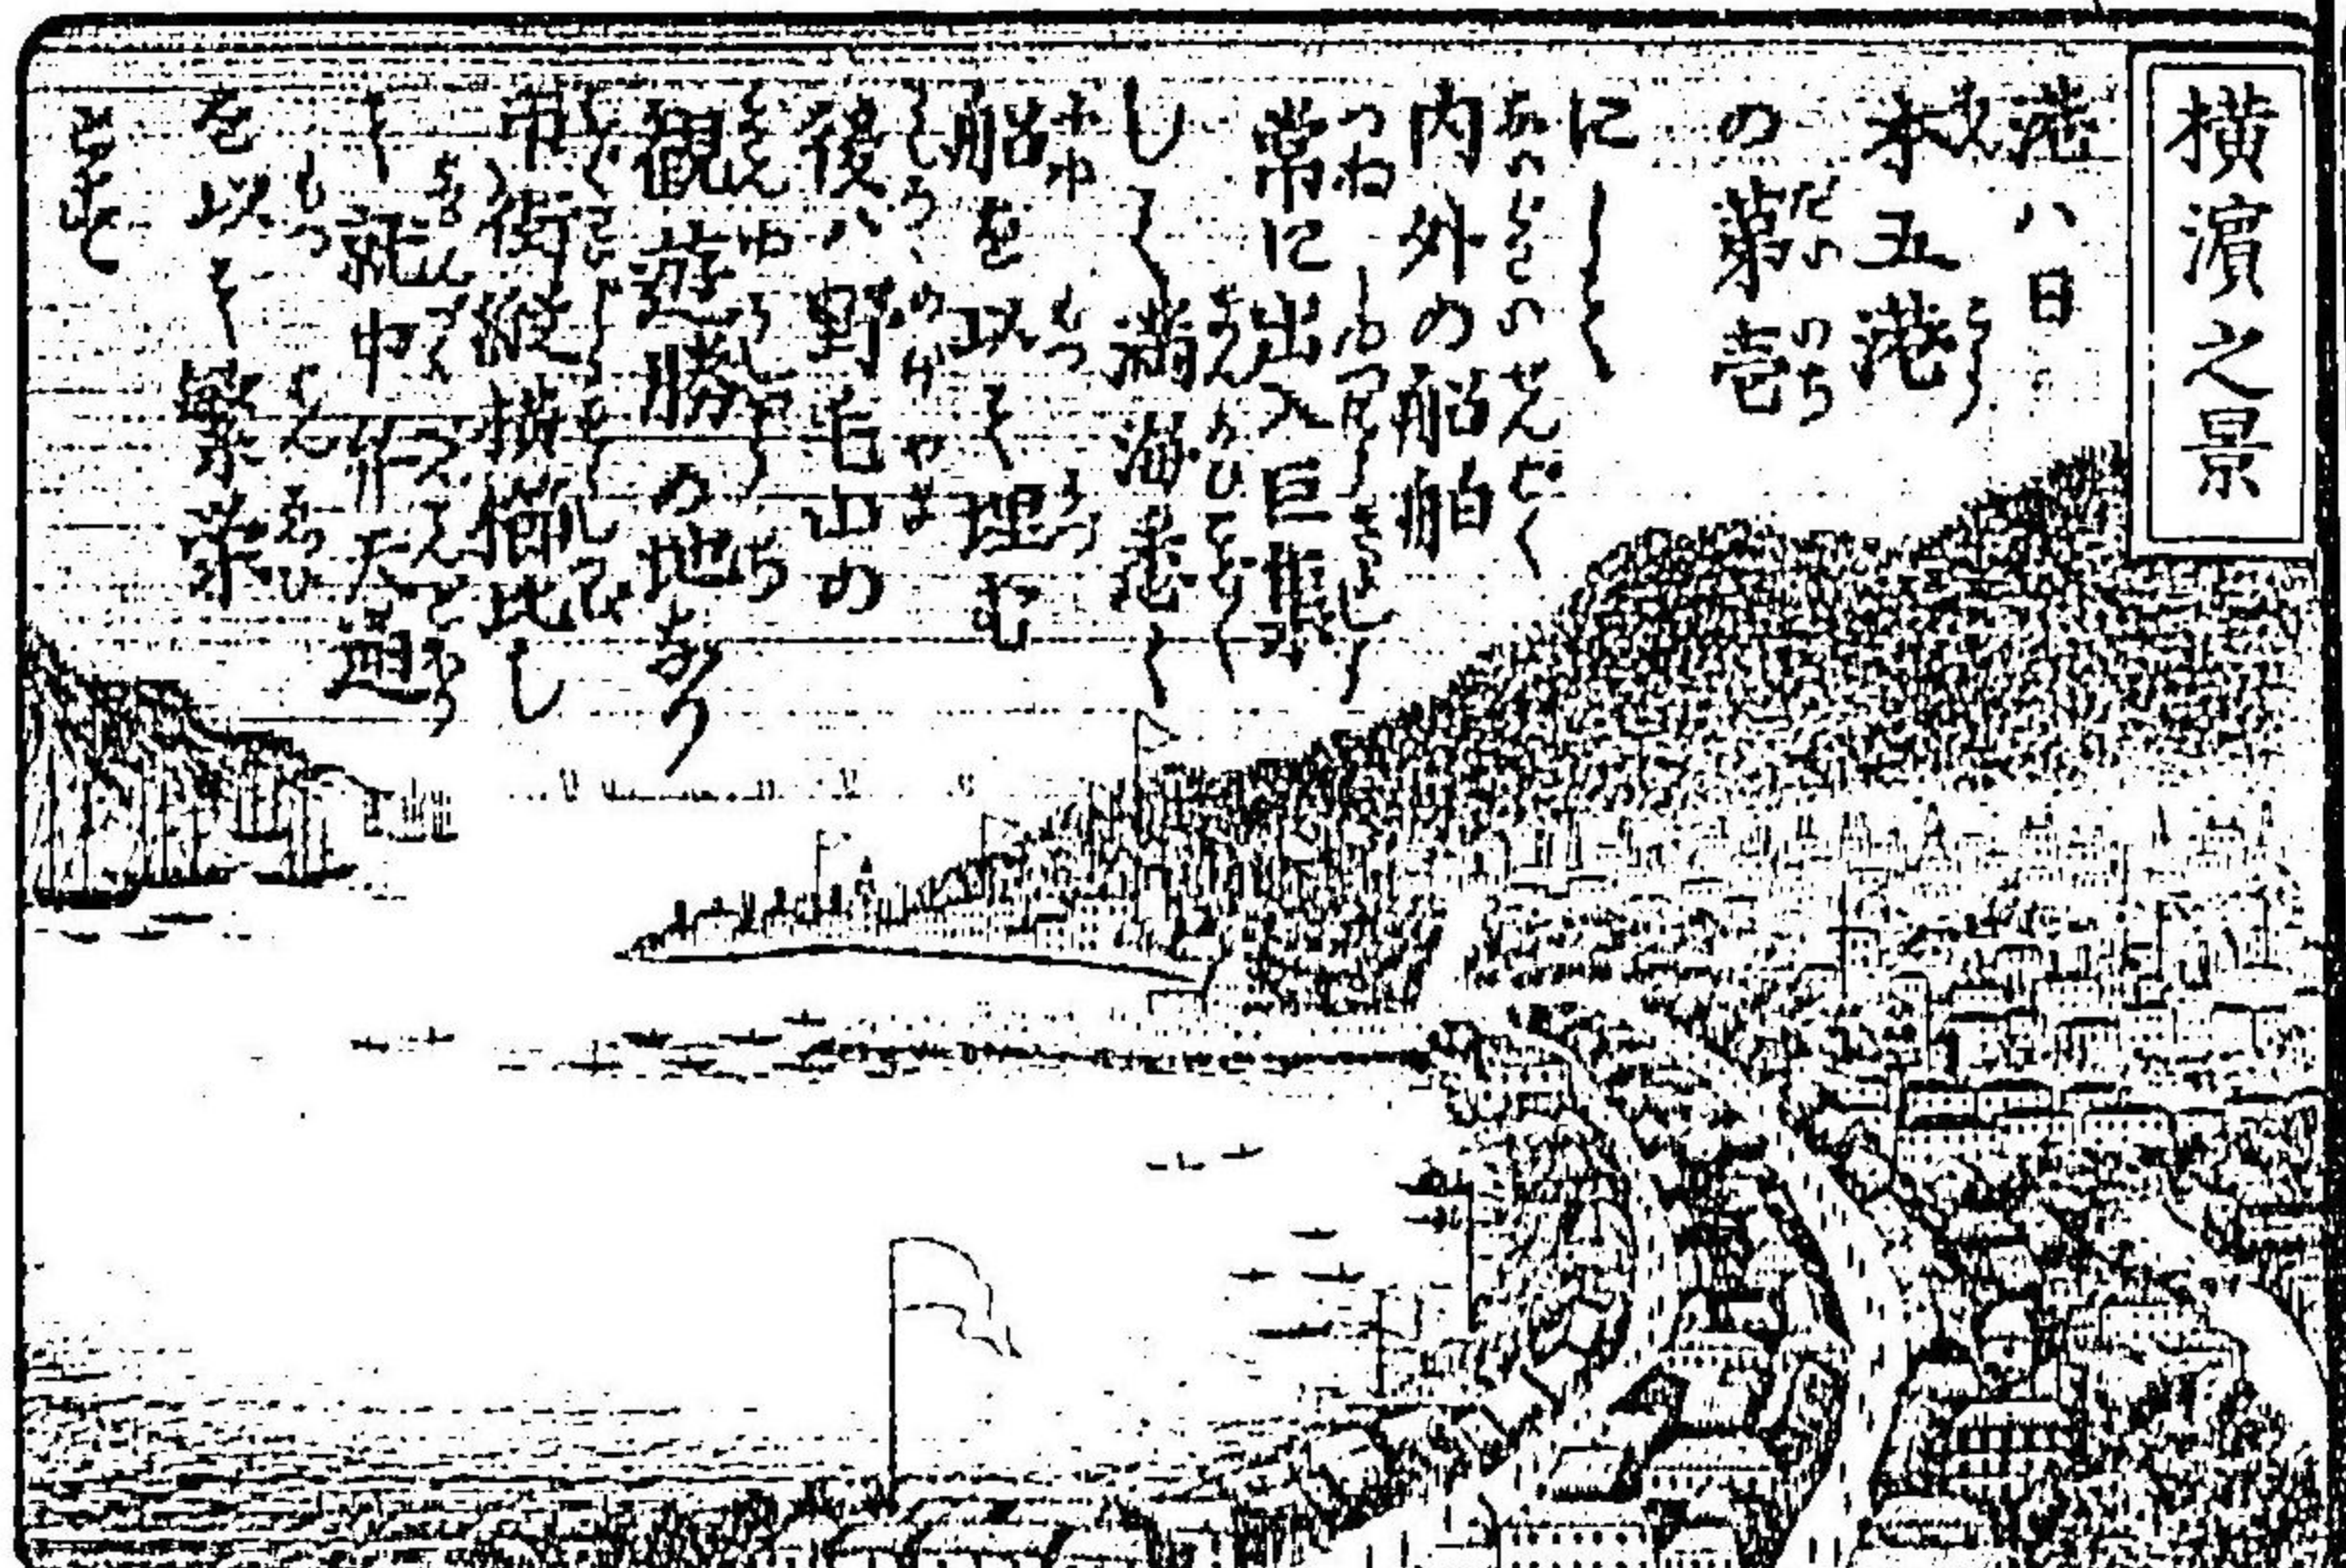 横濱之景
港ハ日
本五港
の第壱
にして
内外の船舶
常に出入巨艦
して満海悉く
船を以て埋む
後ハ野毛山の
観遊勝の地あり
市街縦横櫛比し
て就中弁天通
を以て繁栄
とす